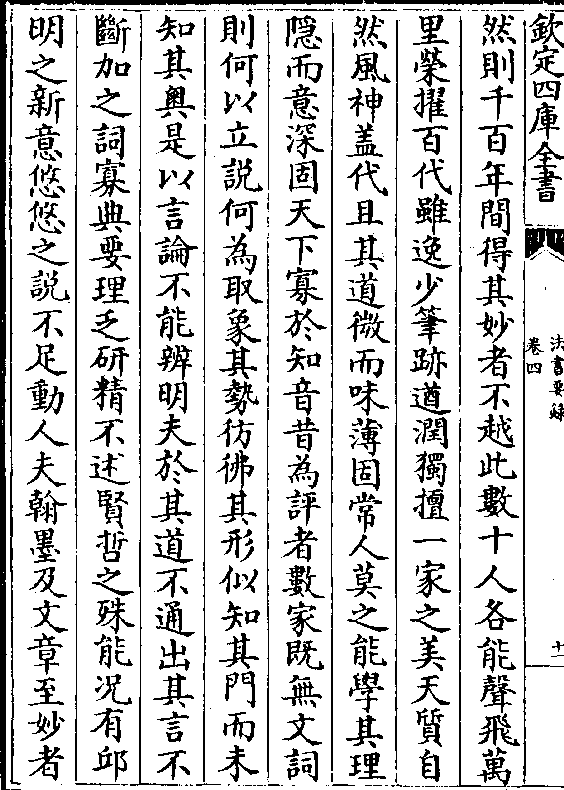 欽定四庫全書
法書要錄
卷四
十一
然則千百年間得其妙者不越此數十人各能聲飛萬
里榮擢百代雖逸少筆跡遒潤獨擅一家之美天質自
然風神盖代且其道微而味薄固常人莫之能學其理
隠而意深固天下寡於知音昔為評者數家既無文詞
則何以立説何為取象其勢彷彿其形似知其門而未
知其奥是以言論不能辨明夫於其道不通出其言不
斷加之詞寡典要理乏研精不述賢哲之殊能况有邱
明之新意悠悠之説不足動人夫翰墨及文章至妙者